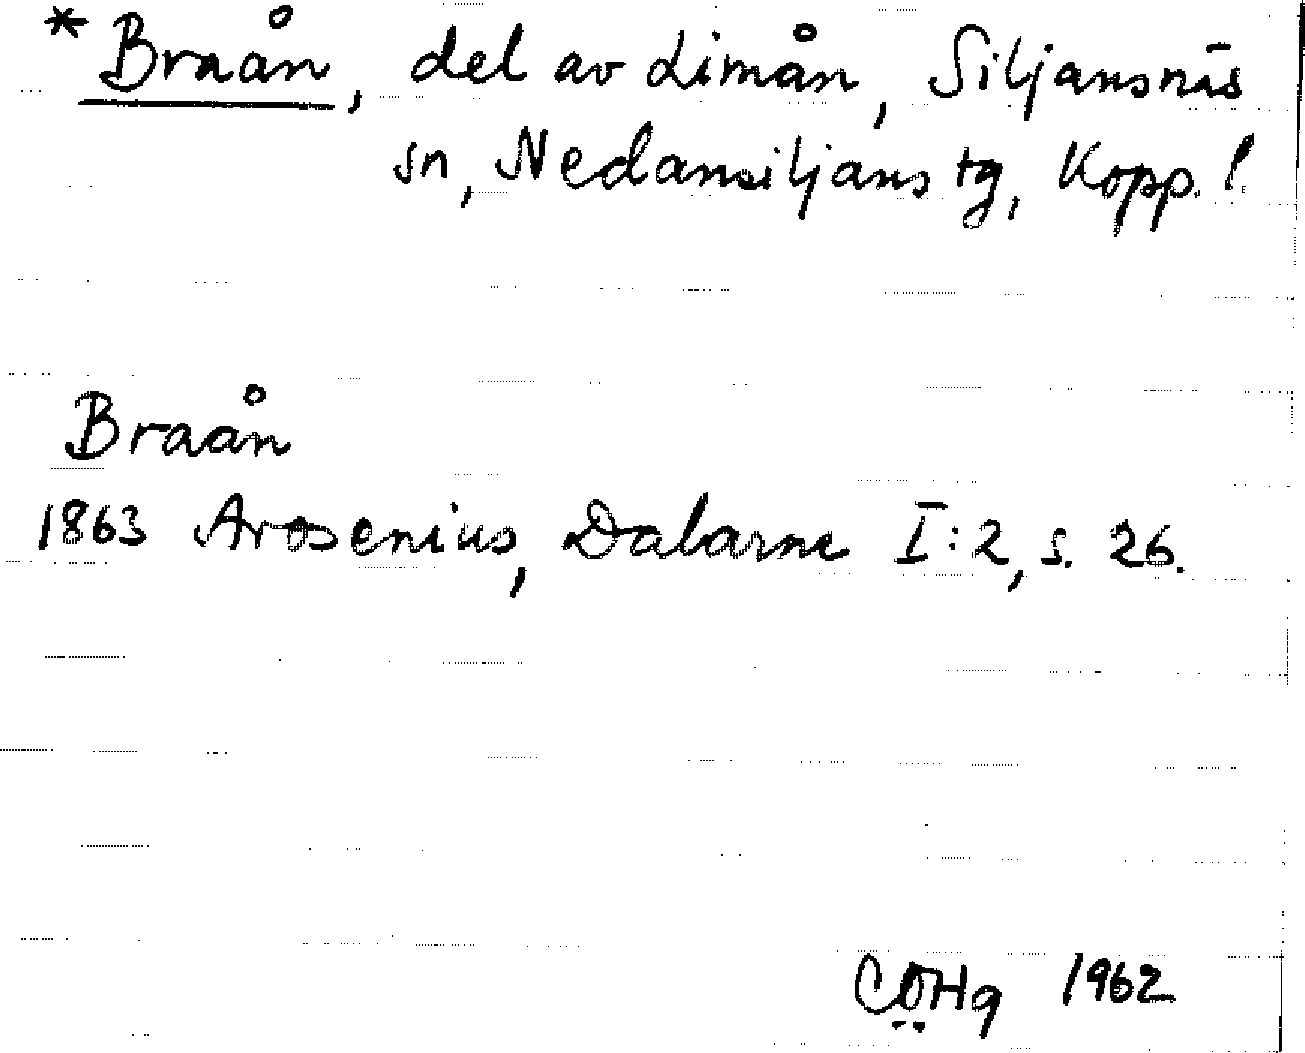 *Braån, del av Limån, Siljansnäs
sn, Nedansiljans tg, Kopp. l
Braån
1863 Arosenius, Dalarne I:2, s. 26.
COHg 1962